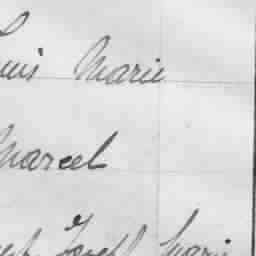 Louis Marie
Marcel
Joseph Marie